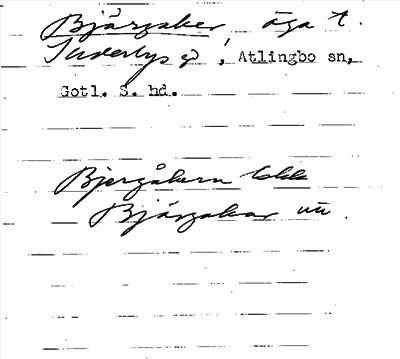 Bjärgaker äga t.
Suderbys gd, Atlingbo sn,
Gotl. S. hd.
Bjergåkern
Bjärgakar un.